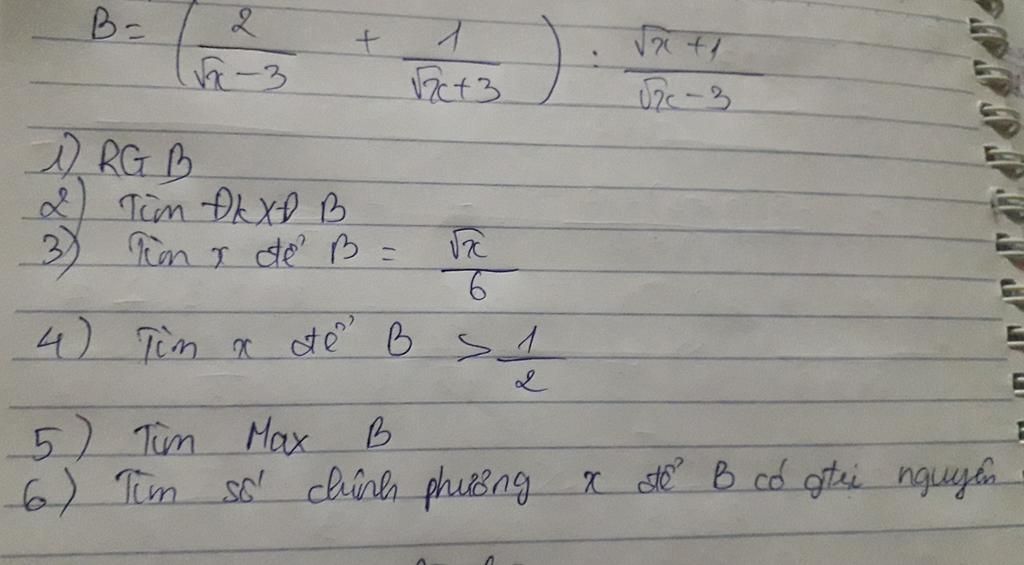 B = ( 2/(√x − 3) + 1/(√x + 3) ) : (√x + 1)/(√x − 3)
1) RG B
2) Tìm ĐkXĐ B
3) Tìm x để B = √x/6
4) Tìm x để B > 1/2
5) Tìm Max B
6) Tìm số chính phương x để B có gtri nguyên